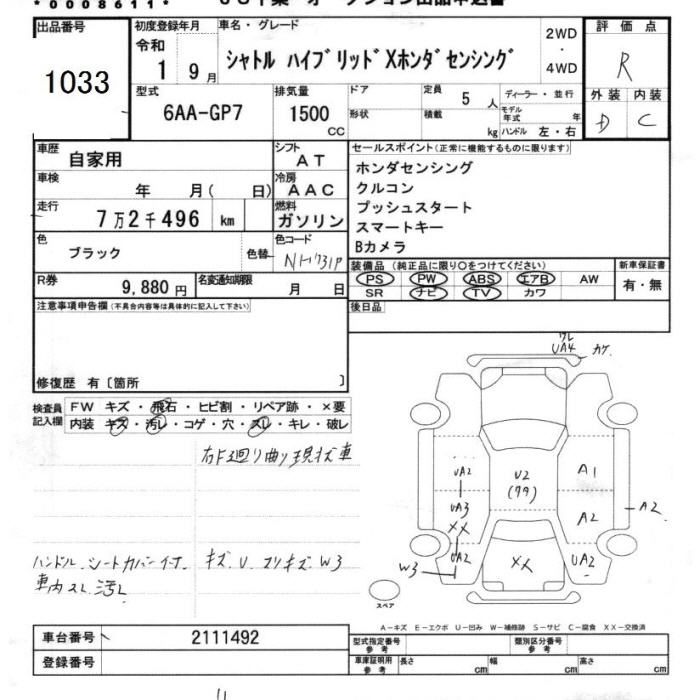 *0008611*
出品番号
1033
初度登録年月
令和
1 9月
車名・グレード
シャトル ハイブリッドXホンダセンシング
2WD
・
4WD
評価点
R
外装 内装
D C
型式
6AA-GP7
排気量
1500
CC
ドア
形状
定員
5人
積載
kg
ディーラー・並行
モデル年式 年
ハンドル 左・右
車歴
自家用
シフト
AT
車検
年 月( 日)
冷房
AAC
走行
7万2千496 km
燃料
ガソリン
色
ブラック
色替
色コード
NH731P
R券
9,880円
名変通知期限
月 日
セールスポイント(正常に機能するものに限ります)
ホンダセンシング
クルコン
プッシュスタート
スマートキー
Bカメラ
装備品(純正品に限り○をつけてください)
PS PW ABS エアB AW
SR ナビ TV カワ
新車保証書
有・無
後日品
注意事項申告欄(不具合内容等は具体的に記入して下さい)
修復歴 有〔箇所 〕
検査員記入欄
FW キズ・飛石・ヒビ割・リペア跡・×要
内装 キズ・汚レ・コゲ・穴・スレ・キレ・破レ
右F廻り曲り現状車
ハンドル、シートカバーイタ
キズ、U、スリキズ W3
車内スレ、汚レ
ワレ
UA4 カケ
UA2
UA3
XX
UA2
W3
U2
(クラ)
A1
A2
A2
UA2
XX
スペア
A-キズ E-エクボ U-凹み W-補修跡 S-サビ C-腐食 XX-交換済
車台番号
2111492
登録番号
型式指定番号
参考
類別区分番号
参考
車庫証明用
参考
長さ cm
幅 cm
高さ cm